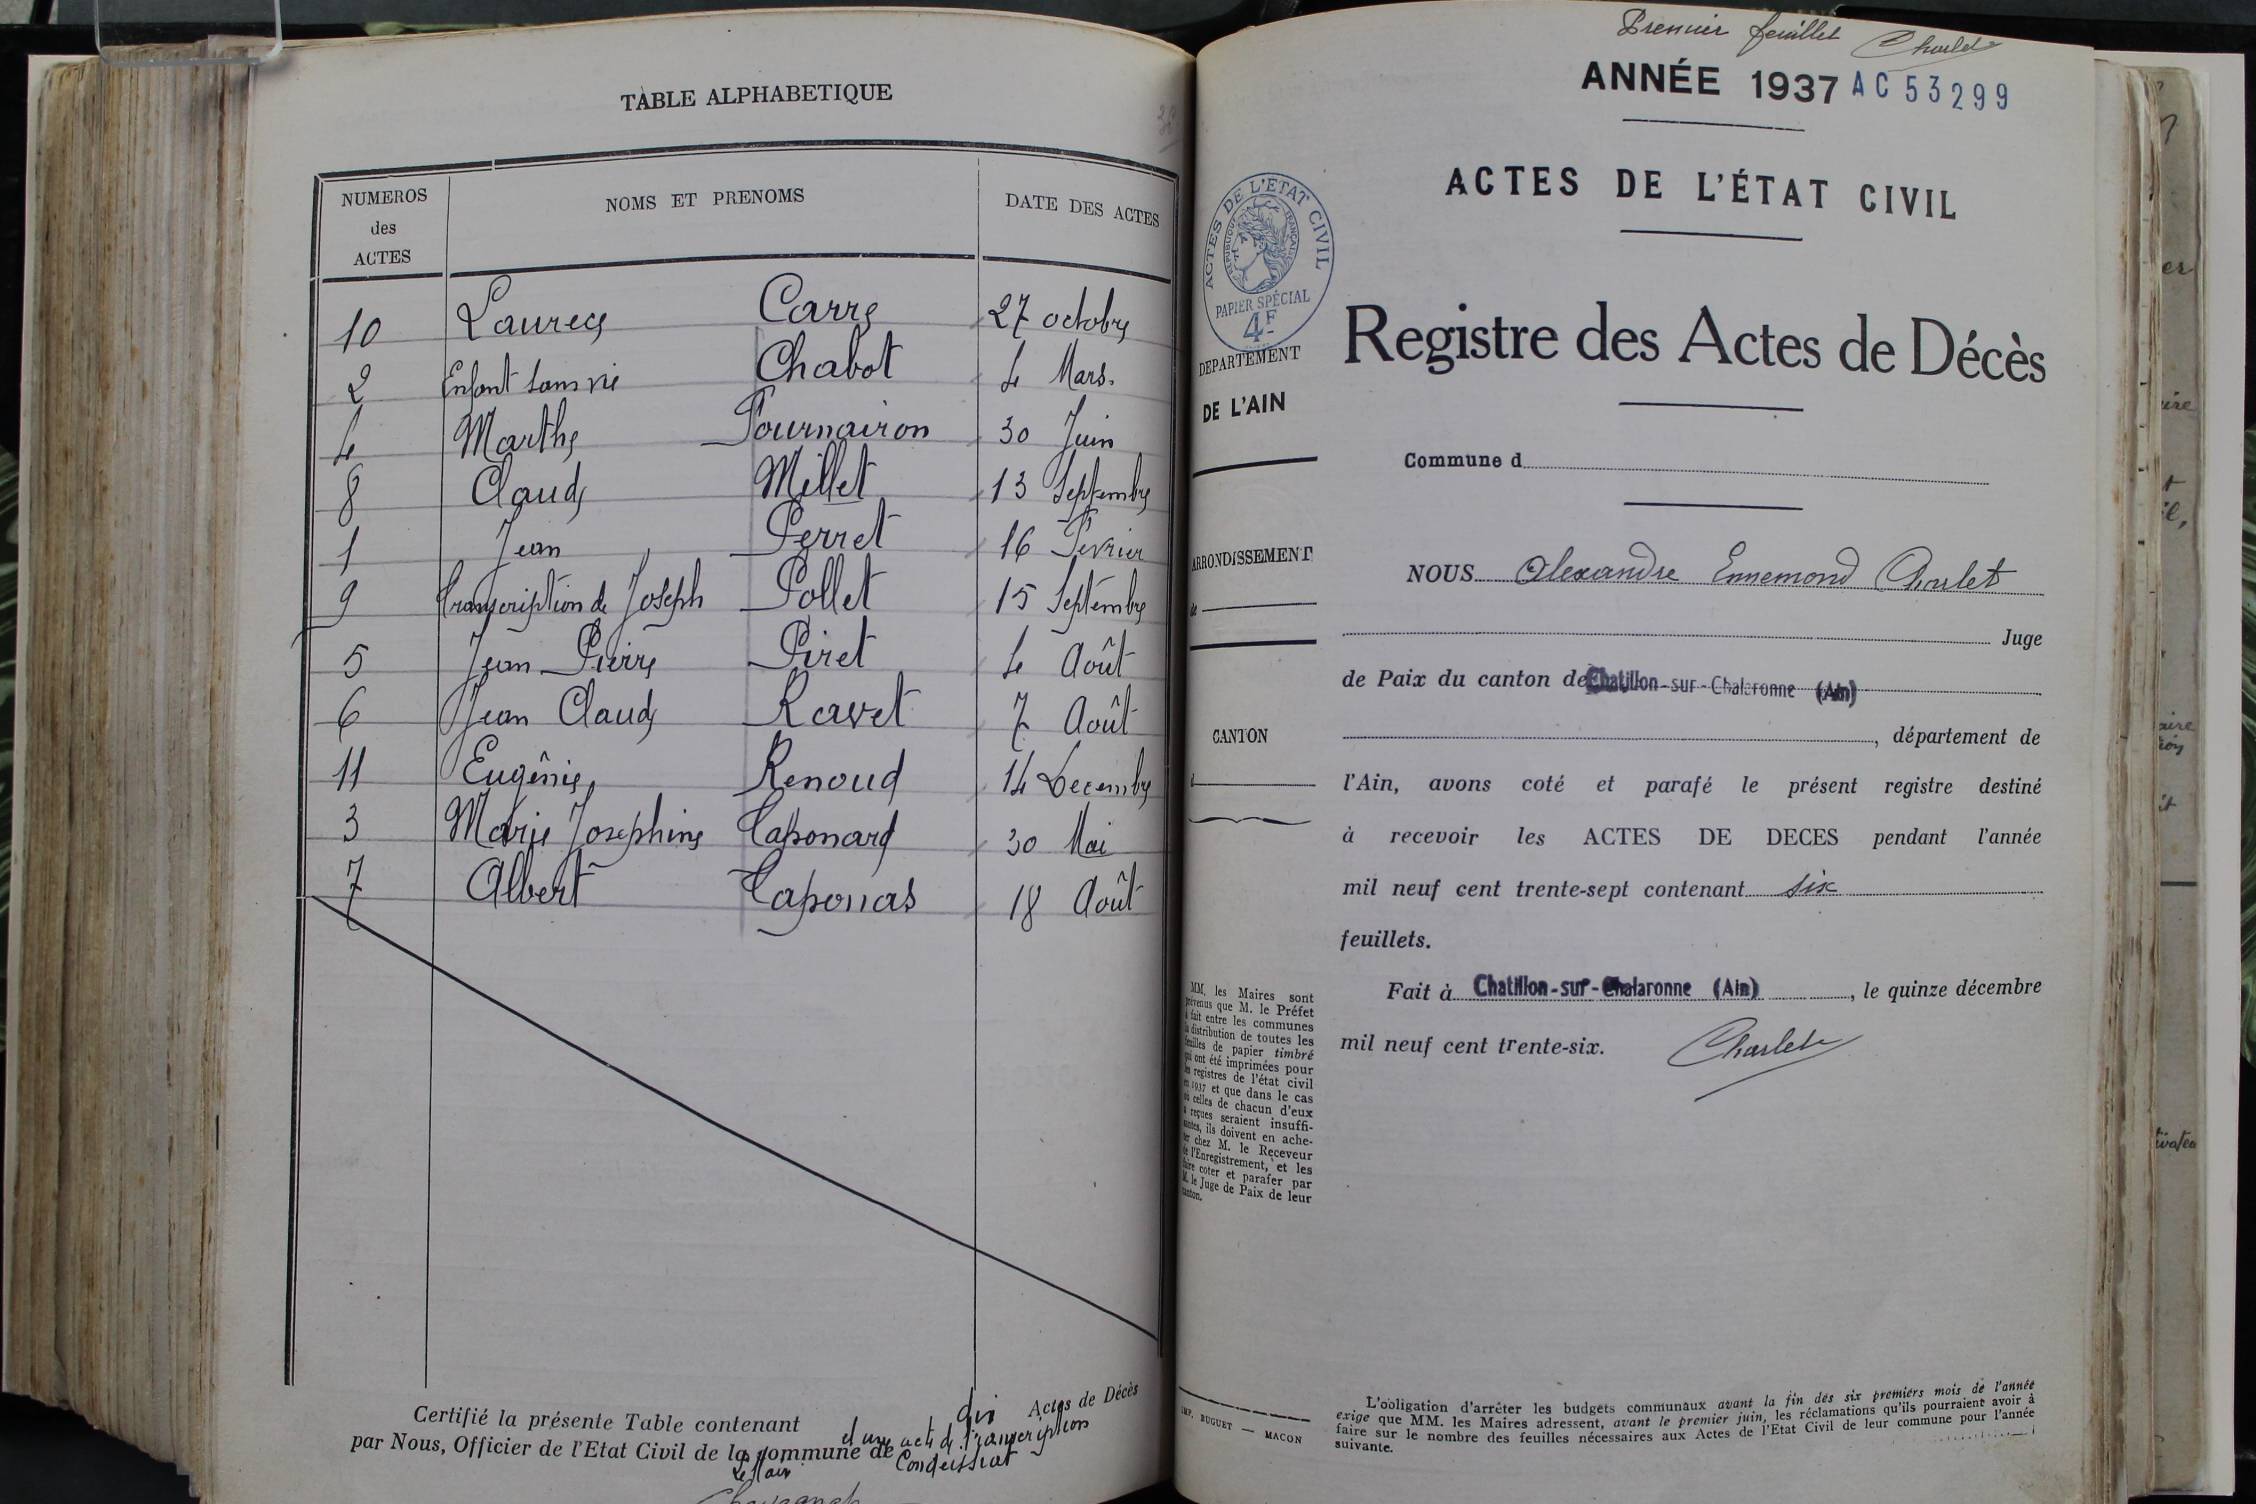 TABLE ALPHABETIQUE
NUMEROS des ACTES
NOMS ET PRENOMS
DATE DES ACTES
10 Laurece Carre 27 octobre
2 Enfant sans vie Chabot 4 Mars.
4 Marthe Fournairon 30 Juin
8 Claude Millet 13 Septembre
1 Jean Perret 16 Fevrier
9 transcription de Joseph Pollet 15 Septembre
5 Jean Pierre Piret 4 Août
6 Jean Claude Ravet 7 Août
11 Eugênie Renoud 14 Decembre
3 Marie Josephine Taponard 30 Mai
7 Albert Taponas 18 Août
Certifié la présente Table contenant dix Actes de Décès
et une acte de transcription
par Nous, Officier de l'Etat Civil de la commune de Condeissiat
Le Maire
Premier feuillet Charlet
ANNÉE 1937 AC 53299
ACTES DE L'ÉTAT CIVIL
ACTES DE L'ETAT CIVIL
REPUBLIQUE FRANÇAISE
PAPIER SPÉCIAL
4F
Registre des Actes de Décès
DEPARTEMENT
DE L'AIN
Commune d
ARRONDISSEMENT
de
CANTON
d
NOUS Alexandre Ennemond Charlet
Juge
de Paix du canton de Chatillon-sur-Chalaronne (Ain)
, département de
l'Ain, avons coté et parafé le présent registre destiné
à recevoir les ACTES DE DECES pendant l'année
mil neuf cent trente-sept contenant six
feuillets.
Fait à Chatillon-sur-Chalaronne (Ain), le quinze décembre
mil neuf cent trente-six. Charlet
MM. les Maires sont
prévenus que M. le Préfet
a fait entre les communes
la distribution de toutes les
feuilles de papier timbré
qui ont été imprimées pour
les registres de l'état civil
en 1937 et que dans le cas
où celles de chacun d'eux
a reçues seraient insuffi-
santes, ils doivent en ache-
ter chez M. le Receveur
de l'Enregistrement, et les
faire coter et parafer par
M. le Juge de Paix de leur
canton.
IMP. BUGUET — MACON
L'obligation d'arrêter les budgets communaux avant la fin des six premiers mois de l'année
exige que MM. les Maires adressent, avant le premier juin, les réclamations qu'ils pourraient avoir à
faire sur le nombre des feuilles nécessaires aux Actes de l'Etat Civil de leur commune pour l'année
suivante.